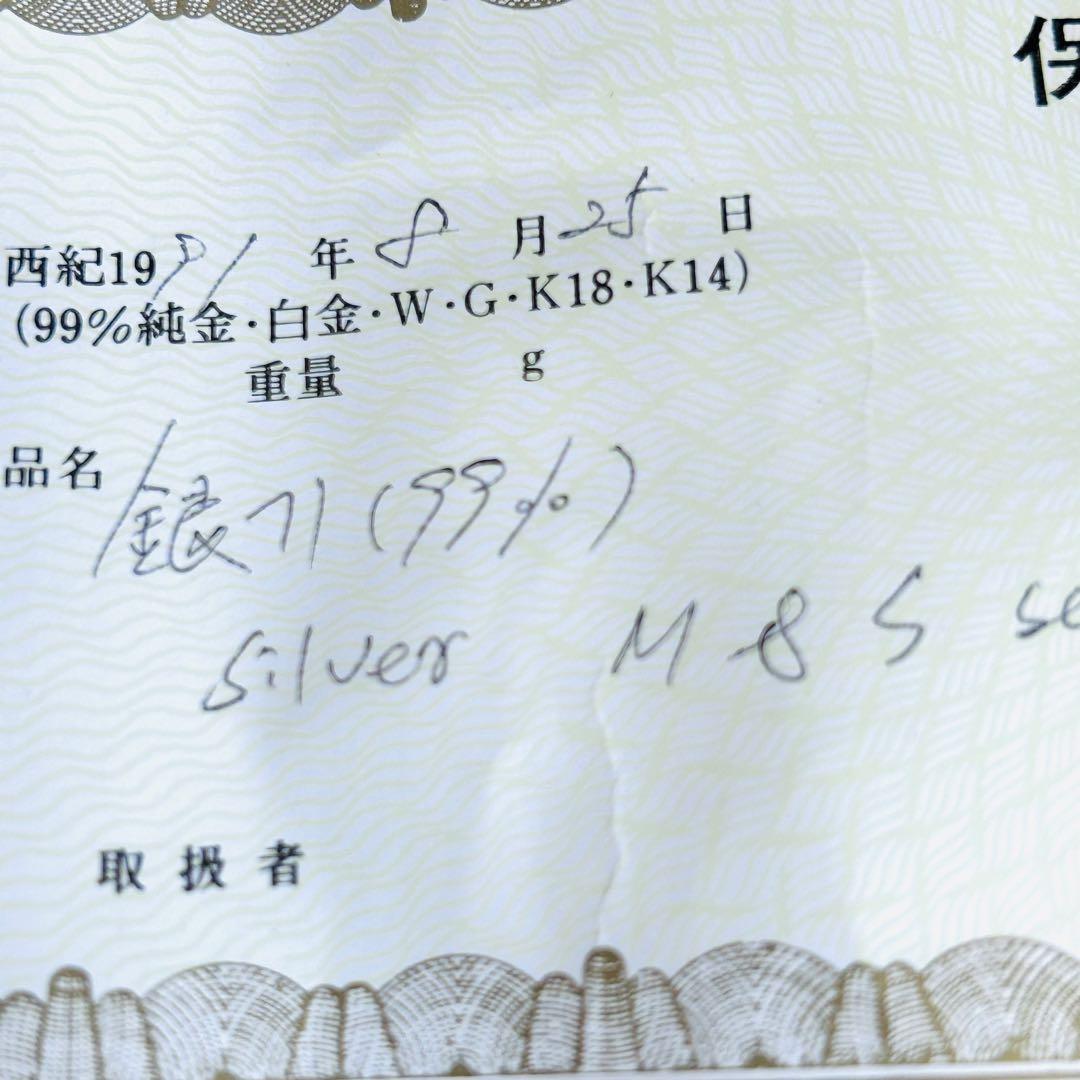 保
西紀1991年8月25日
(99%純金・白金・W・G・K18・K14)
重量 g
品名 銀기(99%)
Silver M & S se
取扱者